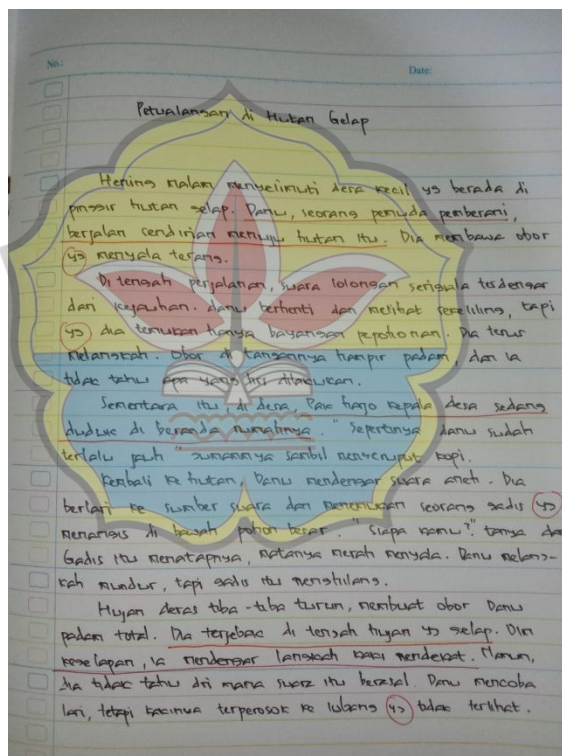 No.:
Date:
Petualangan di Hutan Gelap
Hening malam menyelimuti desa kecil yg berada di
pinggir hutan gelap. Danu, seorang pemuda pemberani,
berjalan sendirian menuju hutan itu. Dia membawa obor
yg menyala terang.
Di tengah perjalanan, suara lolongan serigala terdengar
dari kejauhan. danu berhenti dan melihat sekeliling, tapi
yg dia temukan hanya bayangan pepohonan. Dia terus
melangkah. Obor di tangannya hampir padam, dan ia
tidak tahu apa yang hrs dilakukan.
Sementara itu, di desa, Pak harjo kepala desa sedang
duduk di beranda rumahnya. "Sepertinya danu sudah
terlalu jauh" gumannya sambil menyeruput kopi.
Kembali ke hutan, Danu mendengar suara aneh. Dia
berlari ke sumber suara dan menemukan seorang gadis yg
menangis di bawah pohon besar. "Siapa kamu?" tanya da
Gadis itu menatapnya, matanya merah menyala. Danu melang-
kah mundur, tapi gadis itu menghilang.
Hujan deras tiba-tiba turun, membuat obor Danu
padam total. Dia terjebak di tengah hujan yg gelap. Dlm
kegelapan, ia mendengar langkah kaki mendekat. Namun,
dia tidak tahu dri mana suara itu berasal. Danu mencoba
lari, tetapi kakinya terperosok ke lubang yg tidak terlihat.